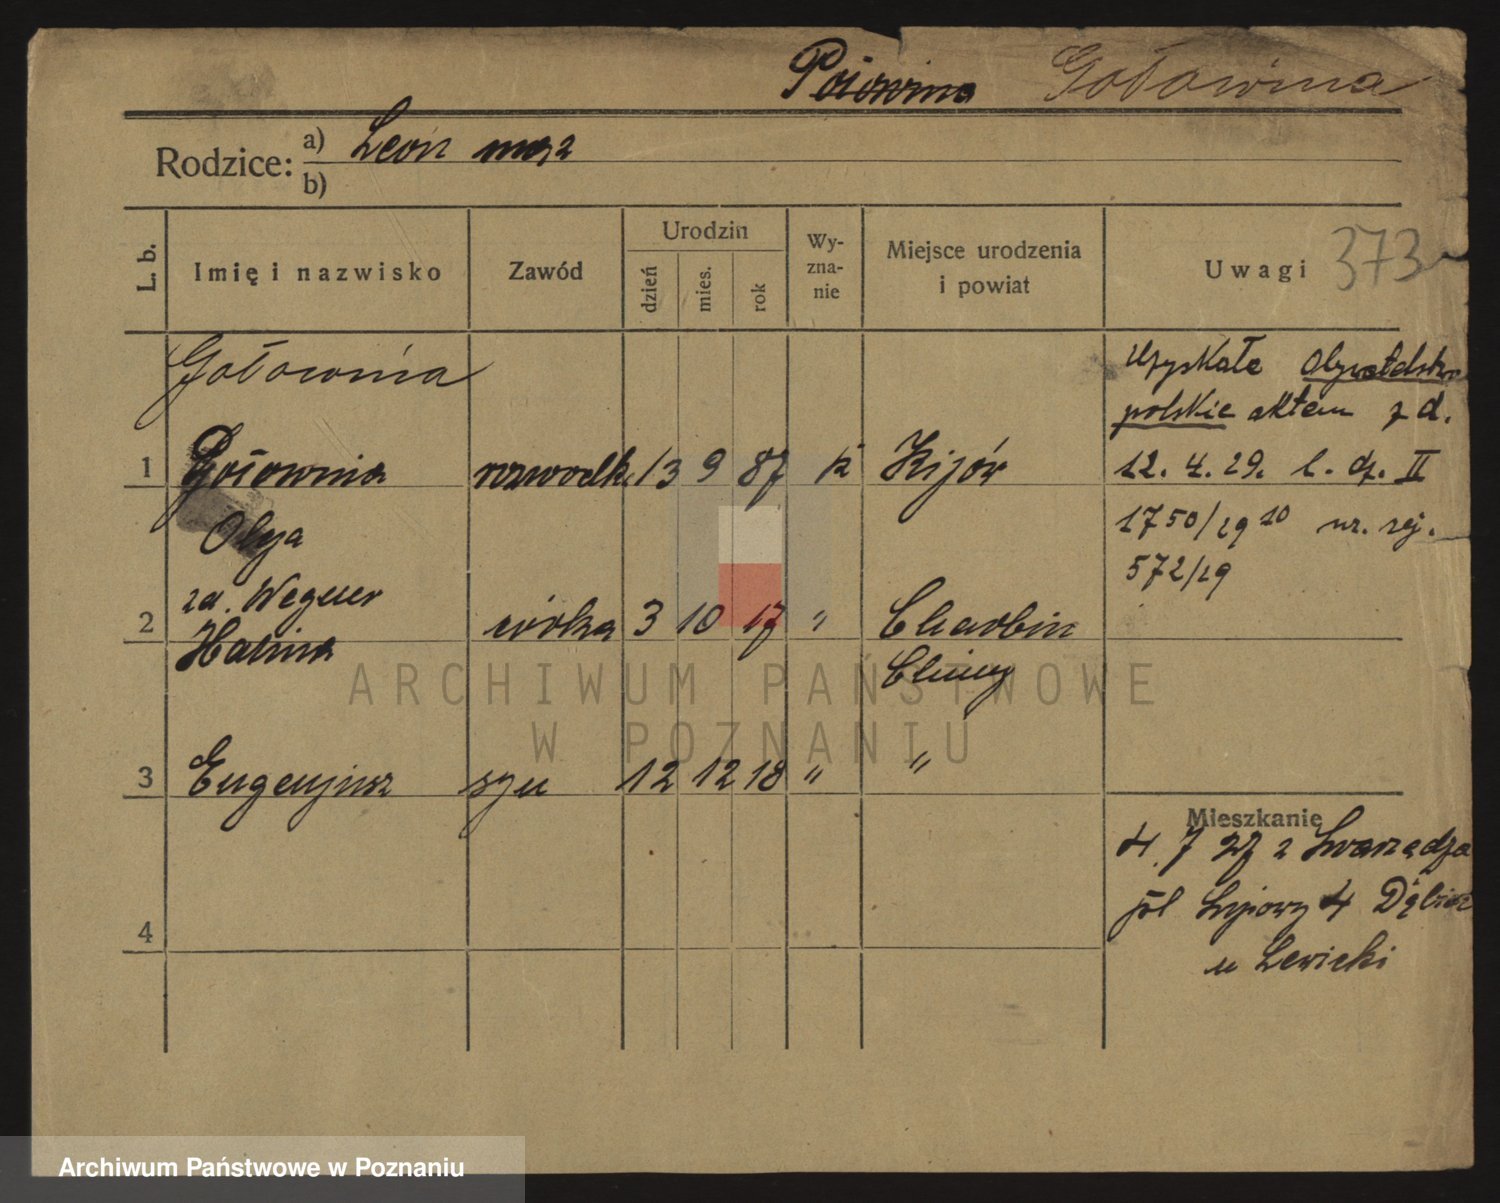 Gołownia
Rodzice: a) Leon mąż
b)
L. b.
Imię i nazwisko
Zawód
Urodzin
dzień
mies.
rok
Wy-
zna-
nie
Miejsce urodzenia
i powiat
Uwagi
373
Gołownia
1 Gołownia rozwodk. 13 9 87 k Kijów
Olga
za. Wegner
2 Halina córka 3 10 17 " Charbin
Chiny
3 Eugenjusz syn 12 12 18 " "
4
uzyskała obywatelstwo
polskie aktem z d.
12. 4. 29. l. dz. II
1750/29 nr. rej.
572/29
Mieszkanie
4. 7 27 z Swarzędza
4
u Lewicki
ARCHIWUM PAŃSTWOWE
W POZNANIU
Archiwum Państwowe w Poznaniu